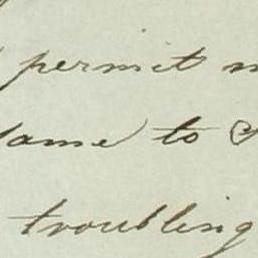 permit
same to
troubling